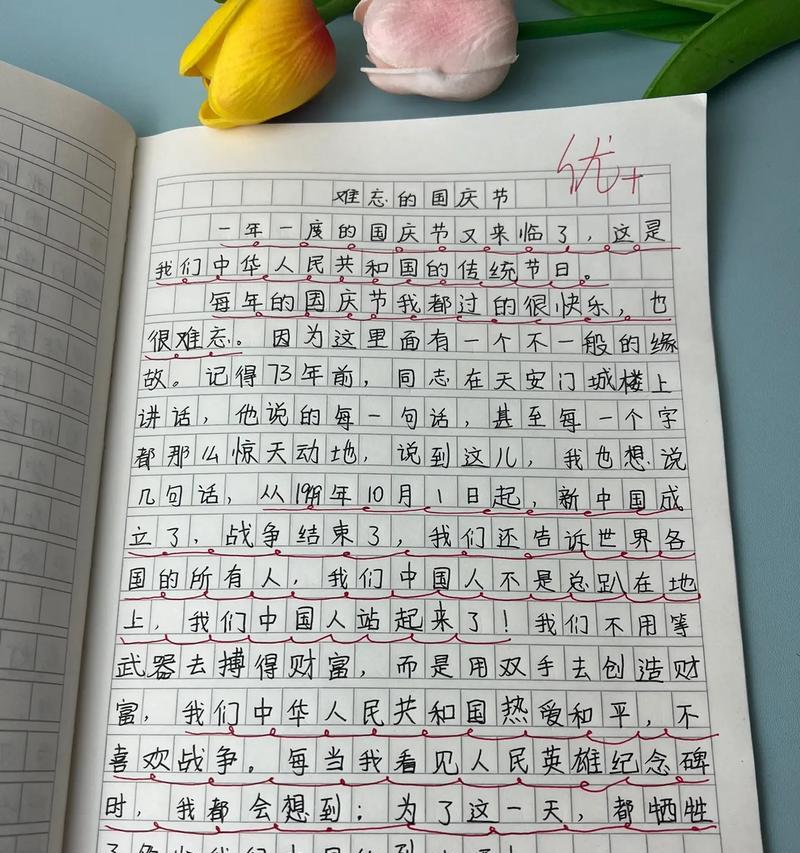 优+
难忘的国庆节
一年一度的国庆节又来临了，这是
我们中华人民共和国的传统节日。
每年的国庆节我都过的很快乐，也
很难忘。因为这里面有一个不一般的缘
故。记得73年前，同志在天安门城楼上
讲话，他说的每一句话，甚至每一个字
都那么惊天动地，说到这儿，我也想说
几句话，从年10月1日起，新中国成
立了，战争结束了，我们还告诉世界各
国的所有人，我们中国人不是总趴在地
上，我们中国人站起来了！我们不用等
武器去搏得财富，而是用双手去创造财
富，我们中华人民共和国热爱和平，不
喜欢战争。每当我看见人民英雄纪念碑
时，我都会想到：为了这一天，都牺牲